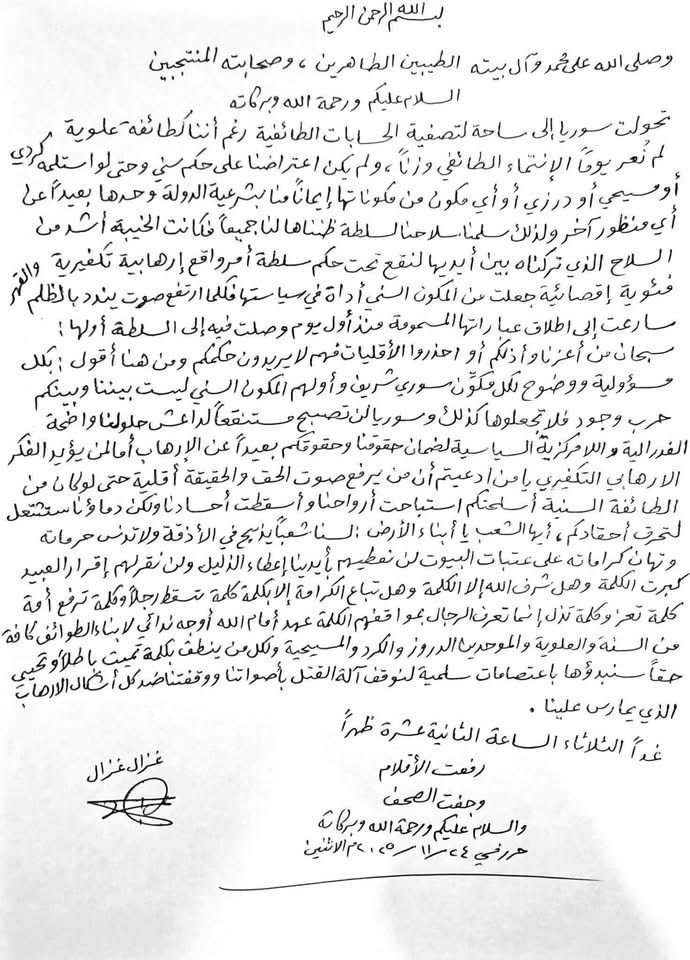 بسم الله الرحمن الرحيم
وصلى الله على محمد وآل بيته الطيبين الطاهرين ، وصحابته المنتجبين
السلام عليكم ورحمة الله وبركاته
تحولت سوريا إلى ساحة لتصفية الحسابات الطائفية رغم أننا كطائفة علوية
لم نُعر يوماً الإنتماء الطائفي وزناً ، ولم يكن اعتراضنا على حكم سني وحتى لو استلمه كردي
أو مسيحي أو درزي أو أي مكون من مكوناتها إيماناً منا بشرعية الدولة وحدها بعيداً عن
أي منظور آخر ولذلك سلمنا سلاحنا لسلطة ظنناها لنا جميعاً فكانت الخيبة أشد من
السلاح الذي تركناه بين أيديها لنقع تحت حكم سلطة أمر واقع إرهابية تكفيرية
فئوية إقصائية جعلت من المكون السني أداة في سياستها فكلما ارتفع صوت يندد بالظلم والقهر
سارعت إلى اطلاق عباراتها المسمومة منذ أول يوم وصلت فيه إلى السلطة أولها :
سبحان من أعزنا وأذلكم أو احذروا الأقليات فهم لا يريدون حكمكم ومن هنا أقول : بكل
مسؤولية ووضوح لكل مكوّن سوري شريف وأولهم المكون السني ليست بيننا وبينكم
حرب وجود فلا تجعلوها كذلك وسوريا لن تصبح مستنقعاً لداعش حلولنا واضحة
الفدرالية واللامركزية السياسية لضمان حقوقنا وحقوقكم بعيداً عن الإرهاب أما لمن يؤيد الفكر
الإرهابي التكفيري يا من ادعيتم أن من يرفع صوت الحق والحقيقة أقلية حتى لو كان من
الطائفة السنية أسلحتكم استباحت أرواحنا وأسقطت أجسادنا ولكن دماؤنا ستشتعل
لتحرق أحقادكم ، أيها الشعب يا أبناء الأرض : لسنا شعباً يذبح في الأزقة ولا تدنس حرماته
وتهان كراماته على عتبات البيوت لن نعطيهم بأيدينا إعطاء الذليل ولن نقر لهم إقرار العبيد
كبرت الكلمة وهل شرف الله إلا الكلمة وهل تباع الكرامة إلا بكلمة كلمة تسقط رجلاً وكلمة ترفع أمة
كلمة تعز وكلمة تذل إنما تعرف الرجال بمواقفهم الكلمة عهد أمام الله أوجه ندائي لأبناء الطوائف كافة
من السنة والعلوية والموحدين الدروز والكرد والمسيحية ولكل من ينطق بكلمة تميت باطلاً وتحيي
حقاً سنبدؤها باعتصامات سلمية لنوقف آلة القتل بأصواتنا ووقفتنا ضد كل أشكال الارهاب
الذي يمارس علينا .
غداً الثلاثاء الساعة الثانية عشرة ظهراً
رفعت الأقلام
وجفت الصحف
والسلام عليكم ورحمة الله وبركاته
حرر في ٢٤ / ١١ / ٢٠٢٥ م الاثنين
غزال غزال